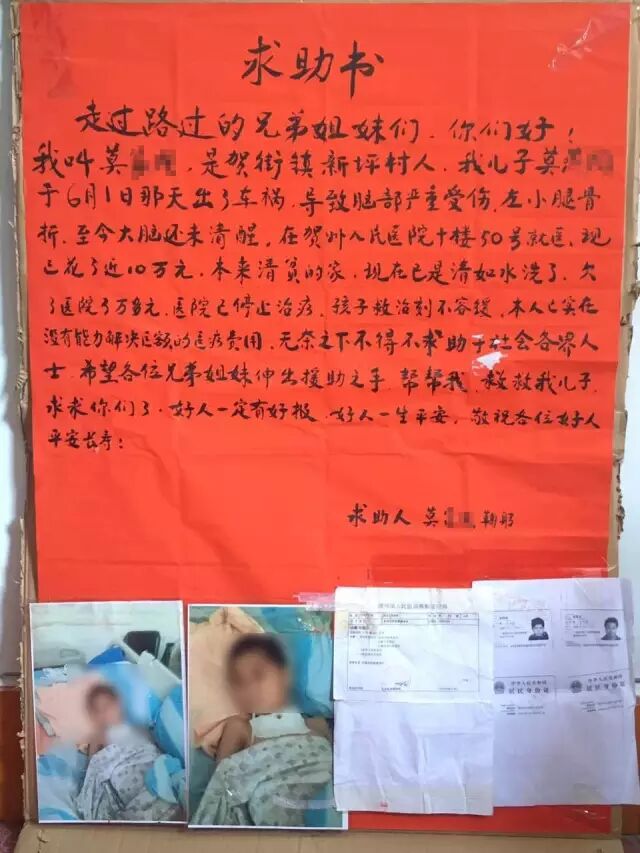 求助书
走过路过的兄弟姐妹们、你们好!
我叫莫 是贺街镇新坪村人、我儿子莫
于6月1日那天出了车祸、导致脑部严重受伤、左小腿骨
折、至今大脑还未清醒、在贺州人民医院十楼50号就医、现
已花了近10万元、本来清贫的家、现在已是清如水洗了、欠
了医院3万多元、医院已停止治疗、孩子救治刻不容缓、本人已实在
没有能力解决巨额的医疗费用、无奈之下不得不求助于社会各界人
士、希望各位兄弟姐妹伸出援助之手、帮帮我、救救我儿子、
求求你们了、好人一定有好报、好人一生平安、敬祝各位好人
平安长寿:
求助人 莫 鞠躬
中华人民共和国
居民身份证
中华人民共和国
居民身份证